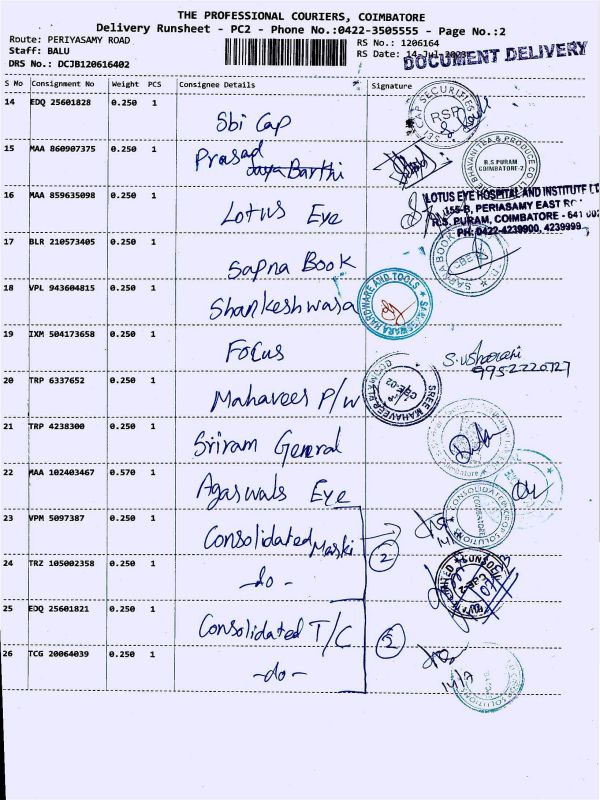 THE PROFESSIONAL COURIERS, COIMBATORE
Delivery Runsheet - PC2 - Phone No.:0422-3505555 - Page No.:2
Route: PERIYASAMY ROAD
Staff: BALU
DRS No.: DCJB120616402
RS No.: 1206164
RS Date: 14-Jul-2023
DOCUMENT DELIVERY
S No Consignment No Weight PCS Consignee Details Signature
14 EDQ 25601828 0.250 1 Sbi Cap
15 MAA 860907375 0.250 1 Prasad Barthi
R.S PURAM
COIMBATORE-2
16 MAA 859635098 0.250 1 Lotus Eye
LOTUS EYE HOSPITAL AND INSTITUTE LT
155-B, PERIASAMY EAST
R.S. PURAM, COIMBATORE - 641 002
PH: 0422-4239900, 4239999
17 BLR 210573405 0.250 1 Sapna Book
18 VPL 943604815 0.250 1 Shankeshwara
HARDWARE AND TOOLS
19 IXM 504173658 0.250 1 Focus
9952220727
20 TRP 6337652 0.250 1 Mahaveer P/W
SREE MAHAVEER
21 TRP 4238300 0.250 1 Sriram General
22 MAA 102403467 0.570 1 Agarwals Eye
23 VPM 5097387 0.250 1 Consolidated
2
24 TRZ 105002358 0.250 1 -do-
25 EDQ 25601821 0.250 1 Consolidated T/C
26 TCG 20064039 0.250 1 -do-
14/7